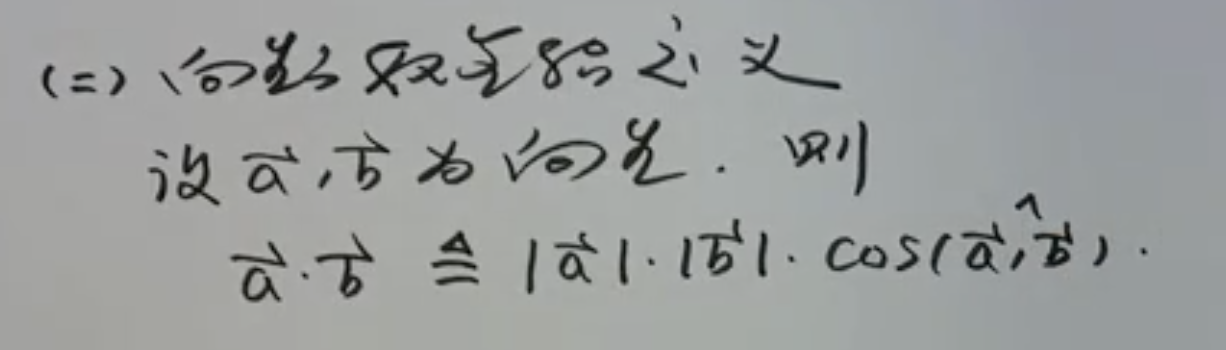 (二) 向量数量积定义
设 $\vec{a}$, $\vec{b}$ 为向量. 则
$\vec{a} \cdot \vec{b} \triangleq |\vec{a}| \cdot |\vec{b}| \cdot \cos(\widehat{\vec{a}, \vec{b}})$.